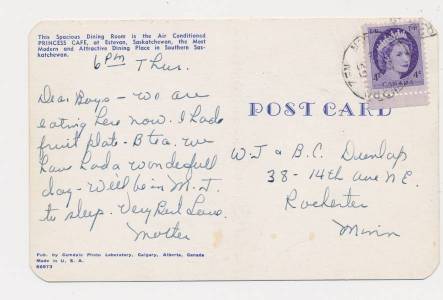 This Spacious Dining Room is the Air Conditioned
PRINCESS CAFE, at Estevan, Saskatchewan, the Most
Modern and Attractive Dining Place in Southern Sas-
katchewan.
6 PM Thur.
Dear Boys - We are
eating here now. I had a
fruit plate - B tea. We
have had a wonderfull
day - Will be in M.J.
to sleep. Very Best Love.
Mother
Pub. by Gundale Photo Laboratory, Calgary, Alberta, Canada
Made in U. S. A.
66973
POST CARD
4¢ 4¢
CANADA
W.J & B.C. Dunlap
38 - 14th Ave N.E.
Rochester
Minn